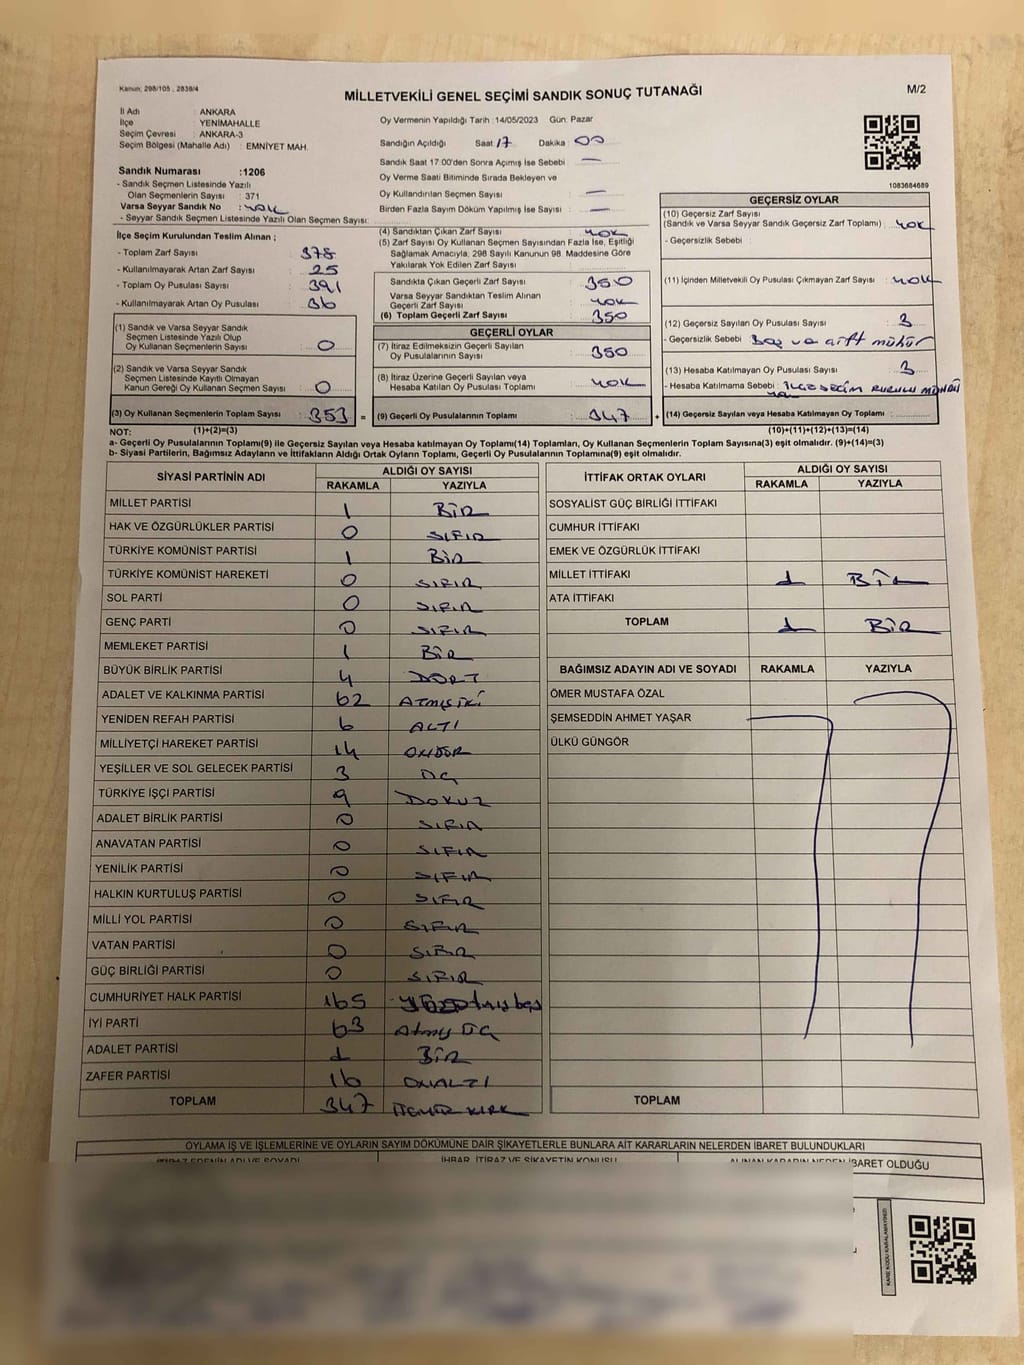 Kanun: 298/105 , 2839/4
M/2
MİLLETVEKİLİ GENEL SEÇİMİ SANDIK SONUÇ TUTANAĞI
İl Adı : ANKARA
İlçe : YENİMAHALLE
Seçim Çevresi : ANKARA-3
Seçim Bölgesi (Mahalle Adı) : EMNİYET MAH.
Sandık Numarası :1206
- Sandık Seçmen Listesinde Yazılı
Olan Seçmenlerin Sayısı : 371
Varsa Seyyar Sandık No : YOK
- Seyyar Sandık Seçmen Listesinde Yazılı Olan Seçmen Sayısı:
Oy Vermenin Yapıldığı Tarih :14/05/2023 Gün: Pazar
Sandığın Açıldığı Saat 17 Dakika : 00
Sandık Saat 17:00'den Sonra Açımış İse Sebebi : —
Oy Verme Saati Bitiminde Sırada Bekleyen ve
Oy Kullandırılan Seçmen Sayısı : —
Birden Fazla Sayım Döküm Yapılmış İse Sayısı : —
1083684689
İlçe Seçim Kurulundan Teslim Alınan ;
- Toplam Zarf Sayısı : 378
- Kullanılmayarak Artan Zarf Sayısı : 25
- Toplam Oy Pusulası Sayısı : 391
- Kullanılmayarak Artan Oy Pusulası : 36
(1) Sandık ve Varsa Seyyar Sandık
Seçmen Listesinde Yazılı Olup
Oy Kullanan Seçmenlerin Sayısı : 0
(2) Sandık ve Varsa Seyyar Sandık
Seçmen Listesinde Kayıtlı Olmayan
Kanun Gereği Oy Kullanan Seçmen Sayısı : 0
(3) Oy Kullanan Seçmenlerin Toplam Sayısı : 353 =
(4) Sandıktan Çıkan Zarf Sayısı : YOK
(5) Zarf Sayısı Oy Kullanan Seçmen Sayısından Fazla İse, Eşitliği
Sağlamak Amacıyla, 298 Sayılı Kanunun 98. Maddesine Göre
Yakılarak Yok Edilen Zarf Sayısı :
Sandıkta Çıkan Geçerli Zarf Sayısı : 350
Varsa Seyyar Sandıktan Teslim Alınan
Geçerli Zarf Sayısı : YOK
(6) Toplam Geçerli Zarf Sayısı : 350
GEÇERLİ OYLAR
(7) İtiraz Edilmeksizin Geçerli Sayılan
Oy Pusulalarının Sayısı : 350
(8) İtiraz Üzerine Geçerli Sayılan veya
Hesaba Katılan Oy Pusulası Toplamı : YOK
(9) Geçerli Oy Pusulalarının Toplamı : 347 +
GEÇERSİZ OYLAR
(10) Geçersiz Zarf Sayısı
(Sandık ve Varsa Seyyar Sandık Geçersiz Zarf Toplamı) : YOK
- Geçersizlik Sebebi :
(11) İçinden Milletvekili Oy Pusulası Çıkmayan Zarf Sayısı : YOK
(12) Geçersiz Sayılan Oy Pusulası Sayısı : 3
- Geçersizlik Sebebi : Boş ve çift mühür
(13) Hesaba Katılmayan Oy Pusulası Sayısı : 3
- Hesaba Katılmama Sebebi : İLÇE SEÇİM KURULU MÜHRÜ
(14) Geçersiz Sayılan veya Hesaba Katılmayan Oy Toplamı :
NOT: (1)+(2)=(3) (10)+(11)+(12)+(13)=(14)
a- Geçerli Oy Pusulalarının Toplamı(9) ile Geçersiz Sayılan veya Hesaba katılmayan Oy Toplamı(14) Toplamları, Oy Kullanan Seçmenlerin Toplam Sayısına(3) eşit olmalıdır. (9)+(14)=(3)
b- Siyasi Partilerin, Bağımsız Adayların ve İttifakların Aldığı Ortak Oyların Toplamı, Geçerli Oy Pusulalarının Toplamına(9) eşit olmalıdır.
SİYASİ PARTİNİN ADI ALDIĞI OY SAYISI
RAKAMLA YAZIYLA
MİLLET PARTİSİ 1 BİR
HAK VE ÖZGÜRLÜKLER PARTİSİ 0 SIFIR
TÜRKİYE KOMÜNİST PARTİSİ 1 BİR
TÜRKİYE KOMÜNİST HAREKETİ 0 SIFIR
SOL PARTİ 0 SIFIR
GENÇ PARTİ 0 SIFIR
MEMLEKET PARTİSİ 1 BİR
BÜYÜK BİRLİK PARTİSİ 4 DÖRT
ADALET VE KALKINMA PARTİSİ 62 ATMIŞ İKİ
YENİDEN REFAH PARTİSİ 6 ALTI
MİLLİYETÇİ HAREKET PARTİSİ 14 ONDÖR
YEŞİLLER VE SOL GELECEK PARTİSİ 3 ÜÇ
TÜRKİYE İŞÇİ PARTİSİ 9 DOKUZ
ADALET BİRLİK PARTİSİ 0 SIFIR
ANAVATAN PARTİSİ 0 SIFIR
YENİLİK PARTİSİ 0 SIFIR
HALKIN KURTULUŞ PARTİSİ 0 SIFIR
MİLLİ YOL PARTİSİ 0 SIFIR
VATAN PARTİSİ 0 SIFIR
GÜÇ BİRLİĞİ PARTİSİ 0 SIFIR
CUMHURİYET HALK PARTİSİ 165
İYİ PARTİ 63 Atmış ÜÇ
ADALET PARTİSİ 1 BİR
ZAFER PARTİSİ 16 ONALTI
TOPLAM 347
İTTİFAK ORTAK OYLARI ALDIĞI OY SAYISI
RAKAMLA YAZIYLA
SOSYALİST GÜÇ BİRLİĞİ İTTİFAKI
CUMHUR İTTİFAKI
EMEK VE ÖZGÜRLÜK İTTİFAKI
MİLLET İTTİFAKI 1 BİR
ATA İTTİFAKI
TOPLAM 1 BİR
BAĞIMSIZ ADAYIN ADI VE SOYADI RAKAMLA YAZIYLA
ÖMER MUSTAFA ÖZAL
ŞEMSEDDİN AHMET YAŞAR
ÜLKÜ GÜNGÖR
TOPLAM
OYLAMA İŞ VE İŞLEMLERİNE VE OYLARIN SAYIM DÖKÜMÜNE DAİR ŞİKAYETLERLE BUNLARA AİT KARARLARIN NELERDEN İBARET BULUNDUKLARI
İTİRAZ EDENİN ADI VE SOYADI İHBAR, İTİRAZ VE ŞİKAYETİN KONUSU ALINAN KARARIN NEDEN İBARET OLDUĞU
KARE KODU KARALAMAYINIZ!